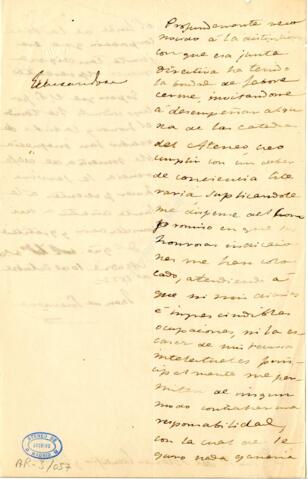 Profundamente reco
nocido á la distincion
con que esa junta
directiva ha tenido
la bondad de favore
cerme, invitandome
á desempeñar algu
na de las catedras
del Ateneo creo
cumplir con un deber
de conciencia lite
raria suplicandole
me dispense del
promiso en que su
honrosas indicacio
nes me han colo
cado, atendiendo á
que ni mis diarias
é imprescindibles
ocupaciones, ni la es
casez de mis recursos
intelectuales prin
cipalmente me per
miten de ningun
modo contraer una
responsabilidad,
con la cual de se
guro nada ganaria
ATENEO DE MADRID
AR-3/057